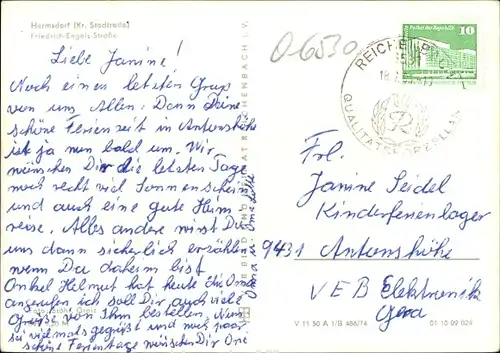 Hermsdorf (Kr. Stadtroda)
Friedrich-Engels-Straße
Liebe Janine!
Noch einen letzten Gruß
von uns Allen. Denn Deine
schöne Ferienzeit in Antonshöhe
ist ja nun bald um. Wir
wünschen Dir die letzten Tage
noch recht viel Sonnenschein
und auch eine gute Heim
reise. Alles andere wirst Du
uns dann sicherlich erzählen
wenn Du daheim bist
Onkel Helmut hat heute
angerufen ich soll Dir auch viele
Grüße von Ihm bestellen. Nun
sei vielmals gegrüßt und noch paar
schöne Ferientage wünschen Dir
O6530
REICHENB
QUALITÄTS
10
Frl.
Janine Seidel
Kinderferienlager
9431 Antonshöhe
VEB Elektronik
Gera
V 11 50 A 1/B 486/74 01 10 09 024